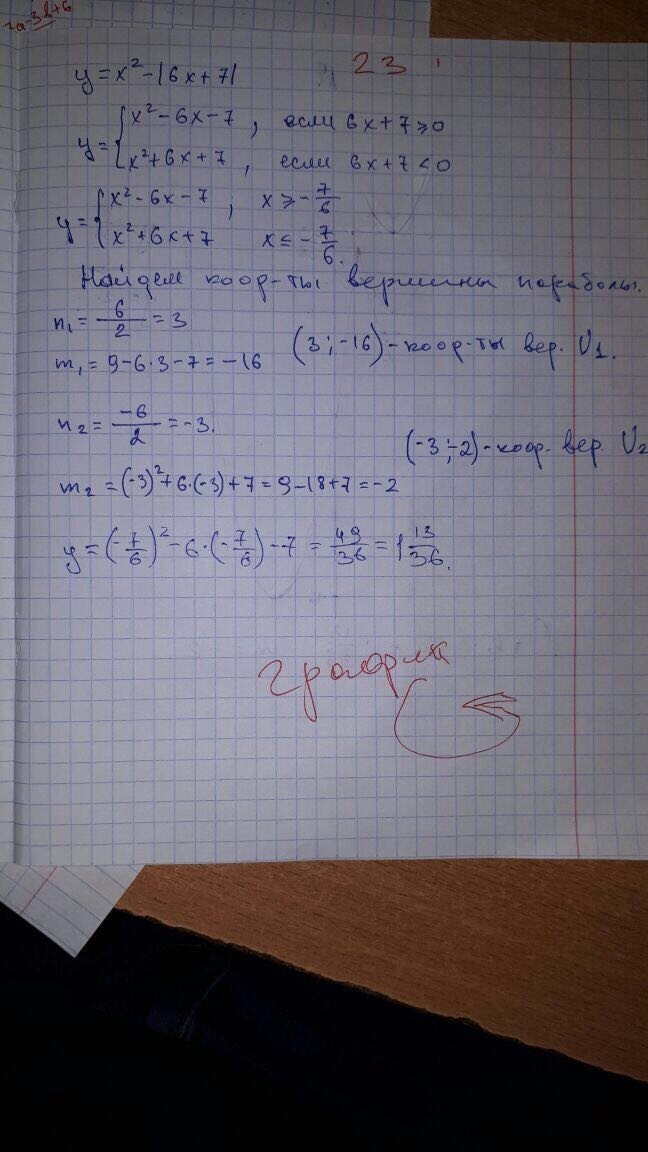 2a-3b+6
23
y = x² - |6x+7|
y = { x² - 6x - 7, если 6x+7 ≥ 0
x² + 6x + 7, если 6x+7 < 0
y = { x² - 6x - 7, x ≥ -7/6
x² + 6x + 7 x ≤ -7/6.
Найдем коор-ты вершины параболы.
n₁ = 6/2 = 3
m₁ = 9 - 6·3 - 7 = -16 (3; -16) - коор-ты вер. U1.
n₂ = -6/2 = -3.
(-3; -2) - коор. вер. U2
m₂ = (-3)² + 6·(-3) + 7 = 9 - 18 + 7 = -2
y = (-7/6)² - 6·(-7/6) - 7 = 49/36 = 1 13/36.
график